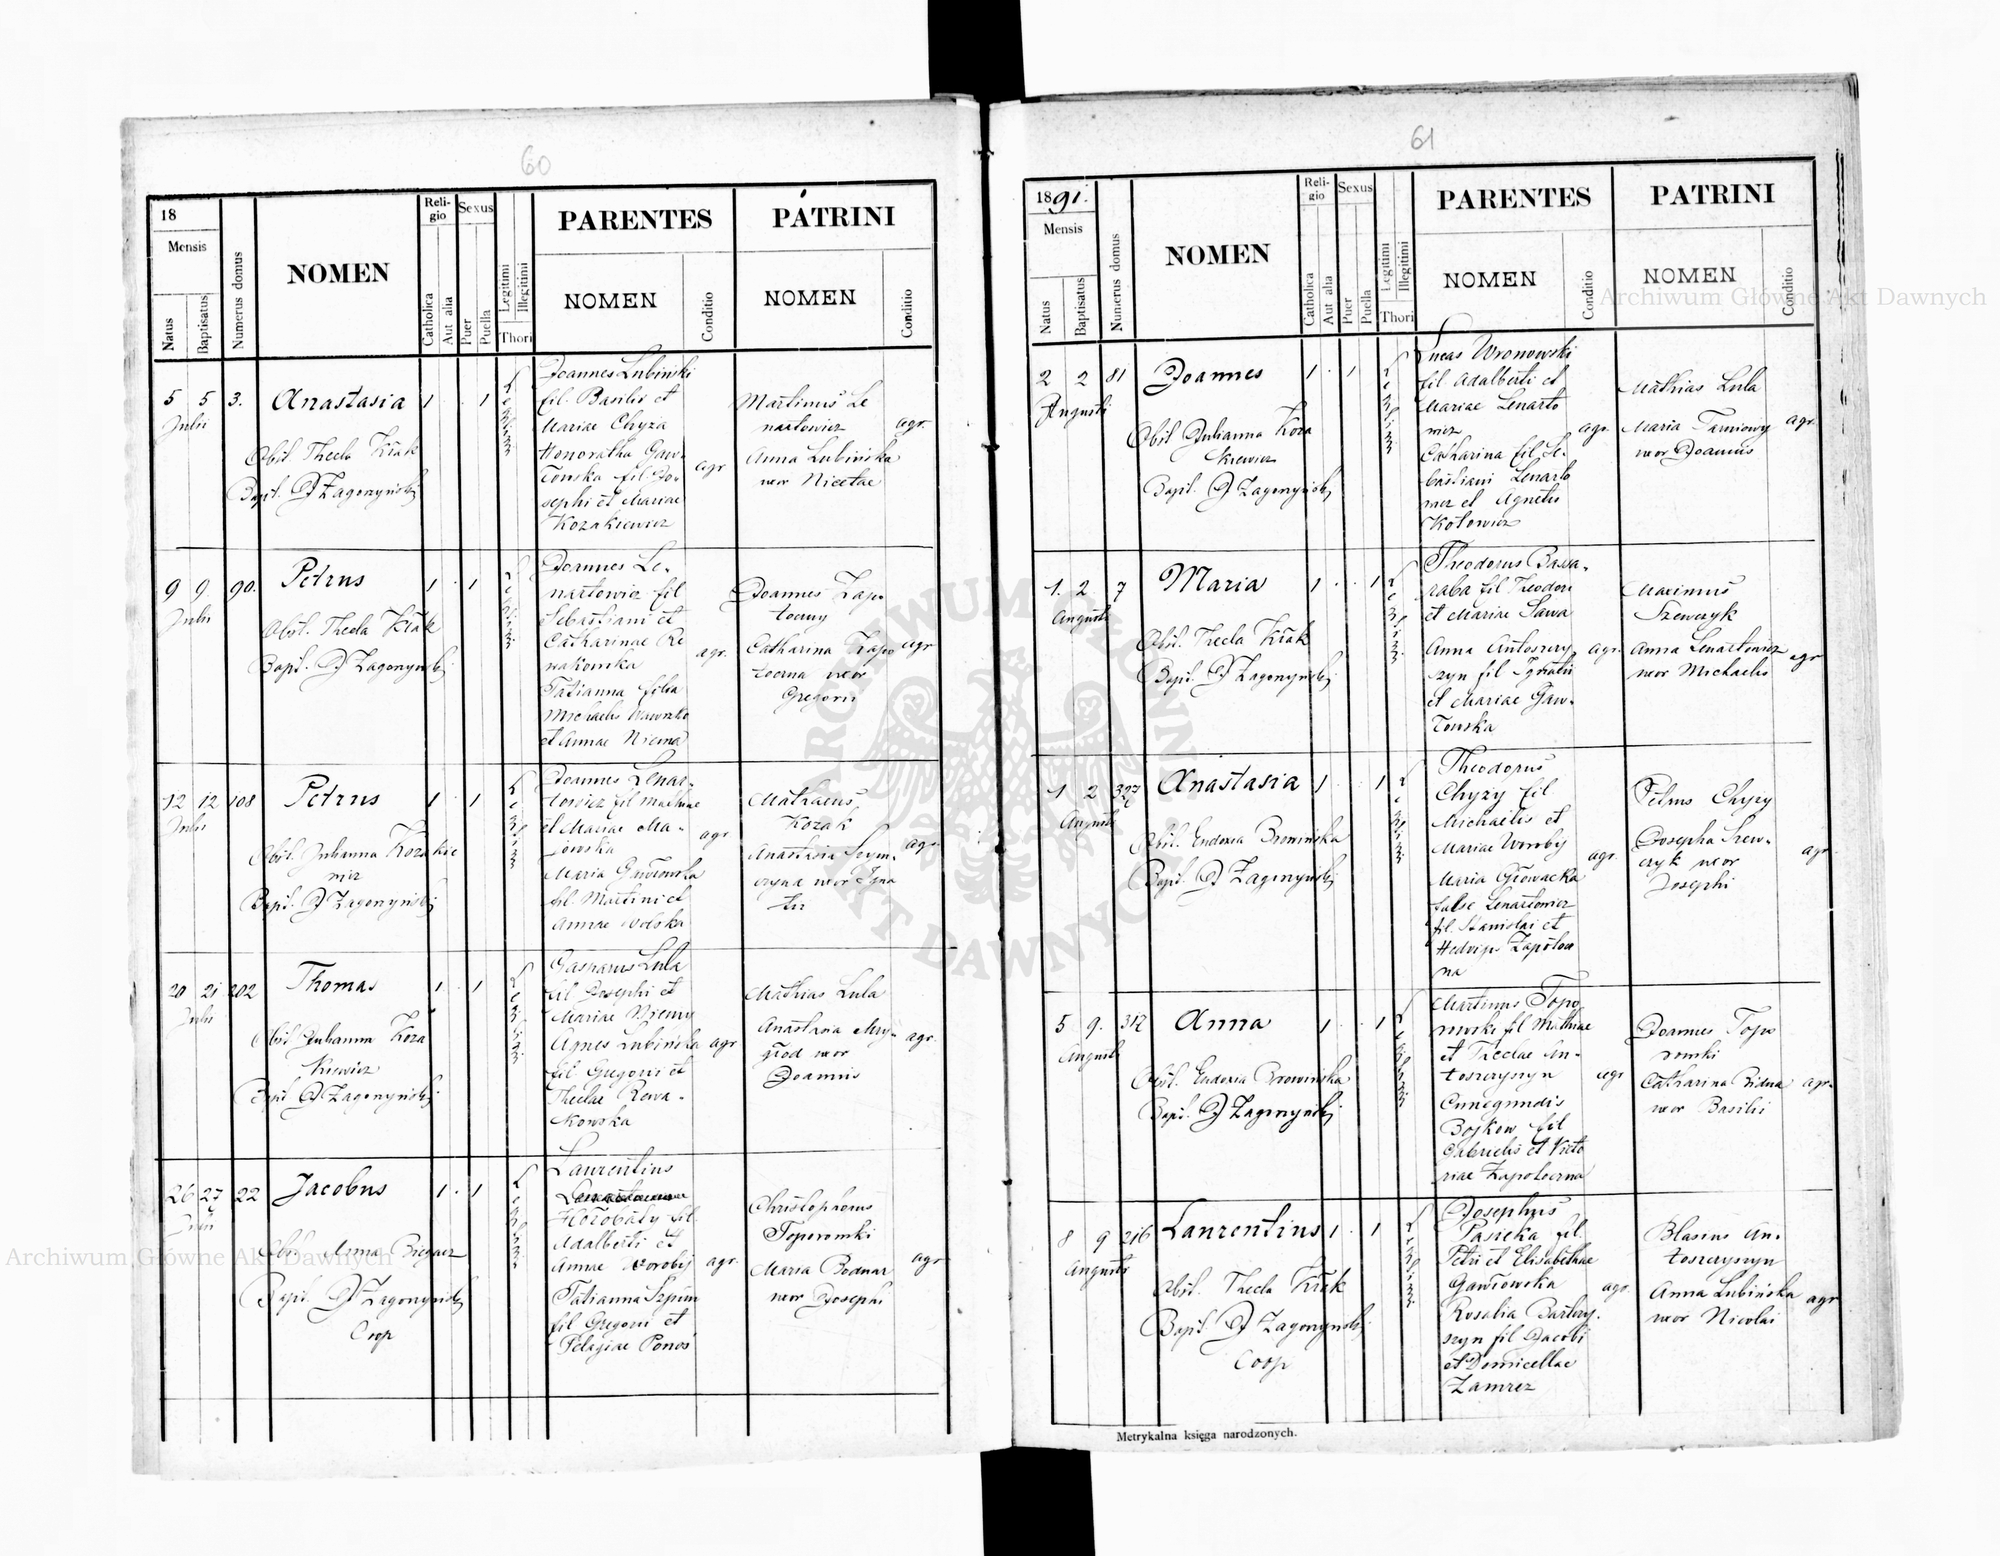 60
18
Mensis
Natus
Baptisatus
Numerus domus
NOMEN
Reli-
gio
Catholica
Aut alia
Sexus
Puer
Puella
Legitimi
Illegitimi
Thori
PARENTES
NOMEN
Conditio
PATRINI
NOMEN
Conditio
5 5 3. Anastasia 1 . . 1
Julii
Obst. Thecla Kłak
Bapt. D Zagorzyński
Joannes Lubiński
fil. Basilii et
Mariae Chyza
Honoratha Gaw-
łowska fil. Jo-
sephi et Mariae
Kozakiewicz
agr
Martinus Le
nartowicz
Anna Lubińska
uxor Nicetae
agr.
9 9 90. Petrus 1 . 1
Julii
Obst. Thecla Kłak
Bapt. D Zagorzyński
Joannes Le-
nartowicz fil
Sebastiani et
Catharinae Re
wakowska
Tatianna filia
Michaelis Wawrzko
et Annae Niema
agr.
Joannes Zapo
toczny
Catharina Zapo
toczna uxor
Gregorii
agr
12 12 108 Petrus 1 . 1
Julii
Obst. Julianna Kozakie
wicz
Bapt. D Zagorzyński
Joannes Lenar-
towicz fil Mathiae
et Mariae Ma-
jewska
Maria Gawłowska
fil. Martini et
Annae Wolska
agr
Mathaeus
Kozak
Anastasia
uxor Igna
tii
agr.
20 21 202 Thomas 1 . 1
Julii
Obst Julianna Koza
kiewicz
Bapt D Zagorzyński
Gasparus Lula
fil Josephi et
Mariae Niemy
Agnes Lubińska
fil Gregorii et
Theclae Rewa-
kowska
agr
Mathias Lula
Anastasia
uxor
Joannis
agr.
26 27 22 Jacobus 1 . 1
Julii
Obst Anna Biegacz
Bapt. D Zagorzyński
Coop
Laurentius
Horobały fil.
Adalberti et
Annae Worobij
Tatianna Szpun
fil Gregorii et
Pelagiae Ponoś
agr.
Christophorus
Toporowski
Maria Bodnar
uxor Josephi
agr
61
1891.
Mensis
Natus
Baptisatus
Numerus domus
NOMEN
Reli-
gio
Catholica
Aut alia
Sexus
Puer
Puella
Legitimi
Illegitimi
Thori
PARENTES
NOMEN
Conditio
PATRINI
NOMEN
Conditio
2 2 81 Joannes 1 . 1
Augusti
Obst Julianna Koza
kiewicz
Bapt. D Zagorzyński
Lucas Wronowski
fil Adalberti et
Mariae Lenarto
wicz
Catharina fil Se-
bastiani Lenarto
wicz et Agnetis
Kotowicz
agr
Mathias Lula
Maria Tarniowy
uxor Joannis
agr.
1. 2 7 Maria 1 . . 1
Augusti
Obst. Thecla Kłak
Bapt. D Zagorzyński
Theodorus Bassa-
raba fil Theodori
et Mariae Sawa
Anna Antoszczy
szyn fil Ignatii
et Mariae Gaw-
łowska
agr.
Maximus
Szewczyk
Anna Lenartowicz
uxor Michaelis
agr
1 2 327 Anastasia 1 . 1
Augusti
Obst. Eudoxia Browińska
Bapt. D Zagorzyński
Theodorus
Chyzy fil
Michaelis et
Mariae Woroby
Maria Głowacka
false Lenartowicz
fil. Stanislai et
Hedvigis Zapotocz
na
agr.
Petrus Chyzy
Josepha Szew-
czyk uxor
Josephi
agr
5 9. 312 Anna 1 . . 1
Augusti
Obst. Eudoxia Browińska
Bapt. D Zagorzyński
Martinus Topo
rowski fil Mathiae
et Theclae An-
toszczyszyn
Cunegundis
Bojkow fil
Gabrielis et Victo
riae Zapotoczna
agr
Joannes Topo
rowski
Catharina Bidna
uxor Basilii
agr.
8 9 216 Laurentius 1 . 1
Augusti
Obst. Thecla Kłak
Bapt. D Zagorzyński
Coop
Josephus
Pasieka fil.
Petri et Elisabethae
Gawłowska
Rosalia Bartczy-
szyn fil Jacobi
et Domicellae
Zamroz
agr.
Blasius An-
toszczyszyn
Anna Lubińska
uxor Nicolai
agr
Metrykalna księga narodzonych.
Archiwum Główne Akt Dawnych
Archiwum Główne Akt Dawnych
ARCHIWUM GŁÓWNE
AKT DAWNYCH